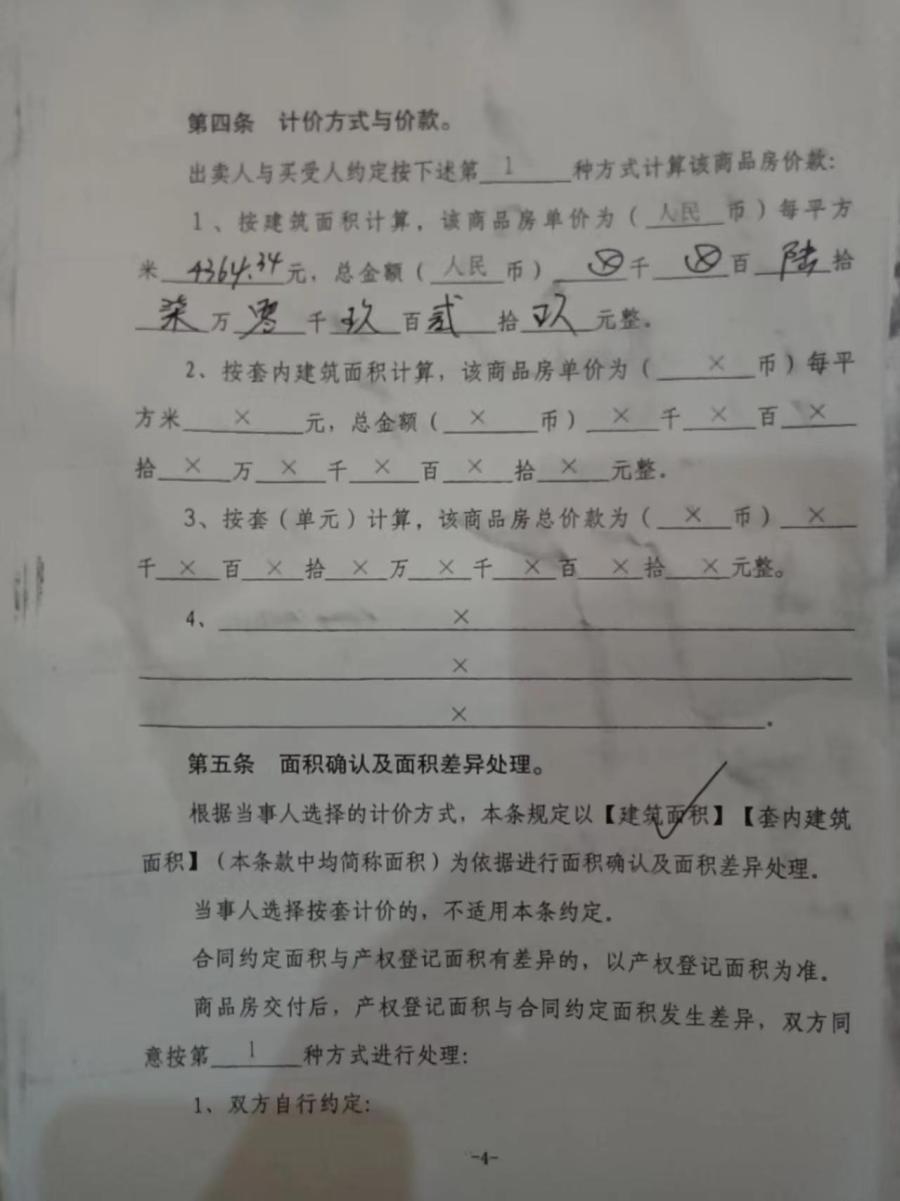 第四条 计价方式与价款。
出卖人与买受人约定按下述第 1 种方式计算该商品房价款:
1、按建筑面积计算，该商品房单价为（ 人民 币）每平方
米 4364.34 元，总金额（ 人民 币） ⊗ 千 ⊗ 百 陆 拾
柒 万 零 千 玖 百 贰 拾 玖 元整。
2、按套内建筑面积计算，该商品房单价为（ × 币）每平
方米 × 元，总金额（ × 币） × 千 × 百 ×
拾 × 万 × 千 × 百 × 拾 × 元整。
3、按套（单元）计算，该商品房总价款为（ × 币） ×
千 × 百 × 拾 × 万 × 千 × 百 × 拾 × 元整。
4、 ×
×
× .
第五条 面积确认及面积差异处理。
根据当事人选择的计价方式，本条规定以【建筑面积】【套内建筑
面积】（本条款中均简称面积）为依据进行面积确认及面积差异处理.
当事人选择按套计价的，不适用本条约定.
合同约定面积与产权登记面积有差异的，以产权登记面积为准.
商品房交付后，产权登记面积与合同约定面积发生差异，双方同
意按第 1 种方式进行处理:
1、双方自行约定:
-4-